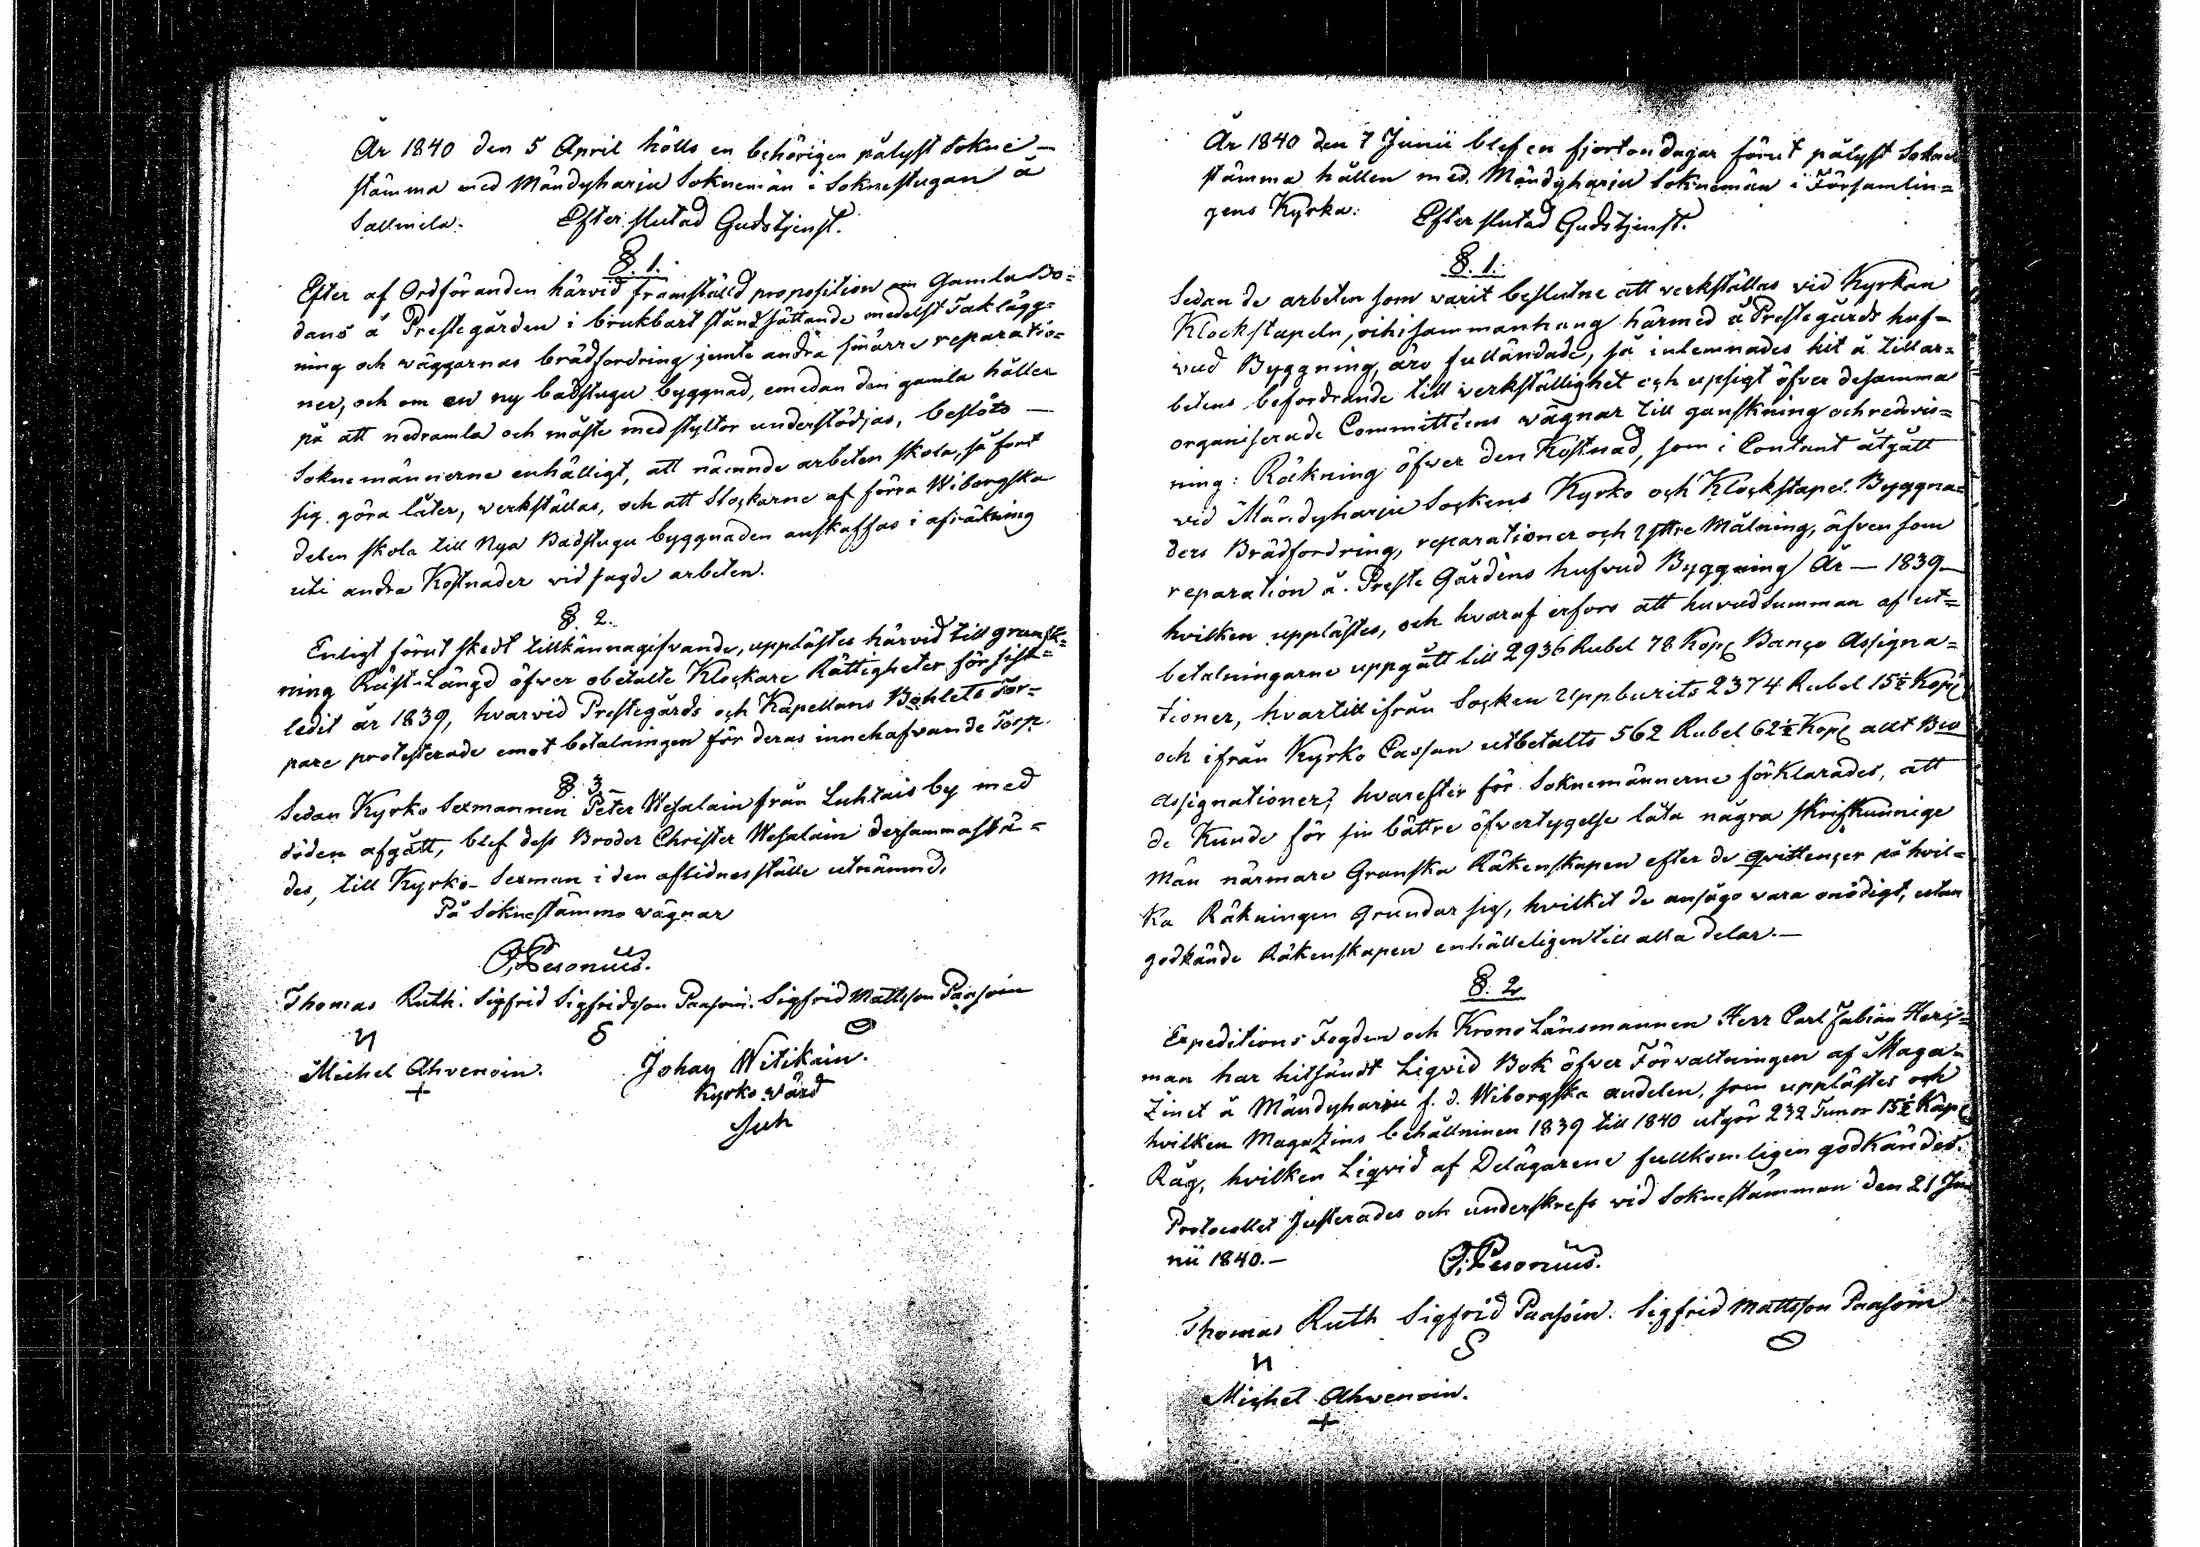 År 1840 den 5 April hölls en behörigen pålyst Sokne-
stämma med Mändyharju Soknemän i Soknestugan å
Sallmila. Efter slutad Gudstjenst.
§. 1.
Efter af Ordföranden härvid framstäld proposition om Gamla Bo-
dans å Prestegården i brukbart stånd sättande medelst Taklägg-
ning och väggarnas brädfordring jemte andra smärre reparatio-
ner, och om en ny badstugu byggnad, emedan den gamla håller
på att nedramla och måste med styltor understödjas, beslöto —
Soknemännerne enhälligt, att nämnde arbeten skola, så fort
sig göra låter, verkställas, och att Stockarne af förra Wiborgska
delen skola till Nya Badstugu byggnaden anskaffas i afräkning
uti andra Kostnader vid sagde arbeten.
§. 2.
Enligt förut skedt tillkännagifvande, upplästes härvid till gransk-
ning Räst-Längd öfver obetalte Klockare Rättigheter för sist-
ledit år 1839, hvarvid Prestegårds och Kapellans Bohlets Tor-
pare protesterade emot betalningen för deras innehafvande Torp.
§. 3
Sedan Kyrko Sexmannen Peter Wesalain från Luhtais by med
döden afgått, blef dess Broder Christer Wesalain dersammastä-
des, till Kyrko-Sexman i den aflidnes ställe utnämnd.
På Soknestämmo vägnar
O. Pesonius.
Thomas Ruth. Sigfrid Sigfridsson Paasoin. Sigfrid Mattsson Paasoin
Michel Ahvenoin. Johan Witikain.
Kyrko värd
År 1840 den 7 Junii blef en fjorton dagar förut pålyst Sokne
stämma hållen med Mändyharju Soknemän i Församlin-
gens Kyrka. Efter slutad Gudstjenst.
§. 1.
Sedan de arbeten som varit beslutne att verkställas vid Kyrkan
Klockstapeln, och i sammanhang härmed å Prestegårds huf-
vud Byggning, äro fulländade, så inlemnades hit å till ar-
betens befordrande till verkställighet och upsigt öfver desamma
organiserade Committéens vägnar till granskning och redovis-
ning: Räkning öfver den Kostnad, som i Contant åtgått
vid Mändyharju Sockens Kyrko och Klockstapel Byggna-
ders Brädfordring, reparationer och yttre Målning, äfven som
reparation å Preste Gårdens hufvud Byggning År — 1839 —
hvilken upplästes, och hvaraf erfors att huvudsumman af ut-
betalningarne uppgått till 2936 Rubel 78 Kop Banco Assigna-
tioner, hvartill ifrån Socken Uppburits 2374 Rubel 15½ Kop
och ifrån Kyrko Cassan utbetalts 562 Rubel 62½ Kop allt Bco
Assignationer; hvarefter för Soknemännerne förklarades, att
de Kunde för sin bättre öfvertygelse låta några skrifkunnige
Män närmare Granska Räkenskapen efter de qvittencer på hvil-
ka Räkningen Grundar sig, hvilket de ansågo vara onödigt, utan
godkände Räkenskapen enhälleligen till alla delar. —
§. 2
Expeditions Fogden och Krono Länsmannen Herr Carl Fabian
man har hitsändt Liqvid Bok öfver Förvaltningen af Maga-
zinet å Mändyharju f. d. Wiborgska andelen, som upplästes och
hvilken Magazins behållninen 1839 till 1840 utgör 232 Tunor 15½ Kap
Råg, hvilken Liqvid af Delägarene fullkomligen godkändes.
Protocollet Justerades och underskrefs vid Soknestämman den 21 Ju
nii 1840. — O. Pesonius.
Thomas Ruth Sigfrid Paasoin. Sigfrid Mattsson Paasoin
Michel Ahvenoin.